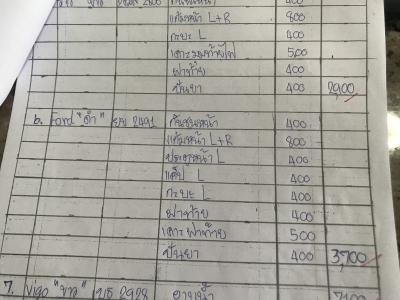 400
แก้มหน้า L+R 800
กะบะ L 400
เคาะรองท้ายไฟ 500
ฝาท้าย 400
ปั่นยา 400 2,900
6. Ford "ดำ" 2491 กันชนหน้า 400
แก้มหน้า L+R 800
ประตูหน้า L 400
แค็ป L 400
กะบะ L 400
ฝาท้าย 400
เคาะฝาท้าย 500
ปั่นยา 400 3,700
7. Vigo "ขาว" 2928